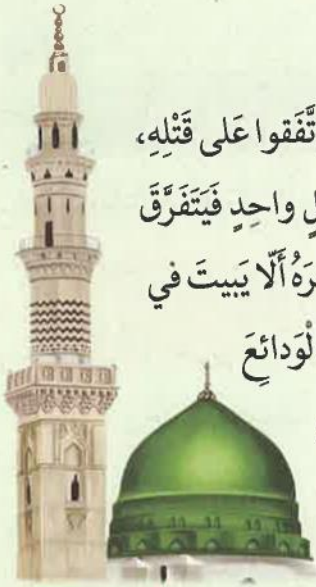 تَّفَقوا عَلى قَتْلِهِ،
لٍ واحِدٍ فَيَتَفَرَّقَ
رَهُ أَلّا يَبيتَ في
لْوَدائِعَ